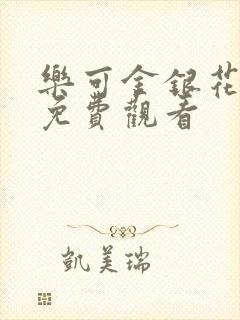 樂可金銀花
免費觀看
凱美瑞